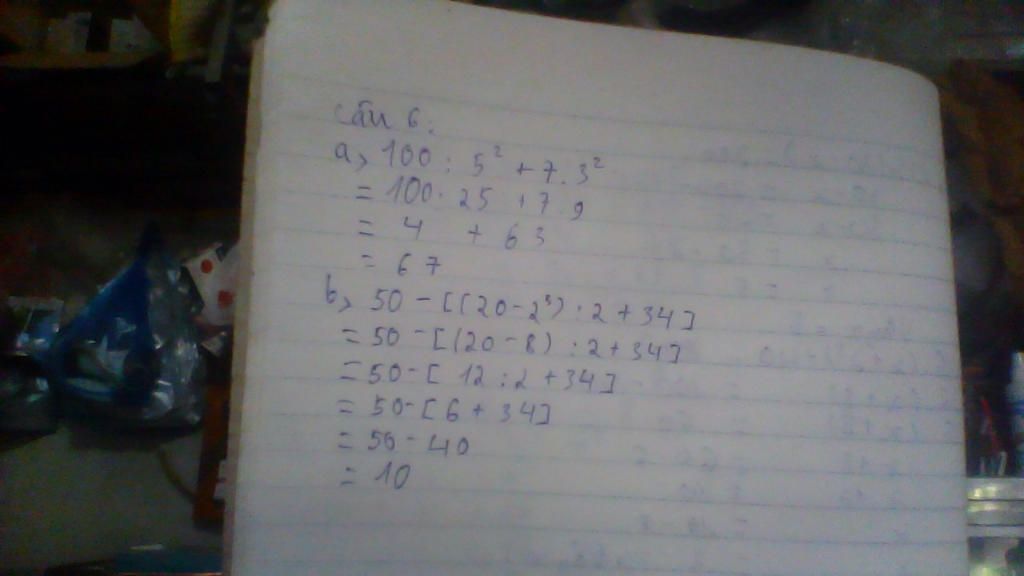 Câu 6:
a, 100 : 5² + 7.3²
= 100 : 25 + 7.9
= 4 + 63
= 67
b, 50 - [(20 - 2³) : 2 + 34]
= 50 - [(20 - 8) : 2 + 34]
= 50 - [ 12 : 2 + 34]
= 50 - [6 + 34]
= 50 - 40
= 10